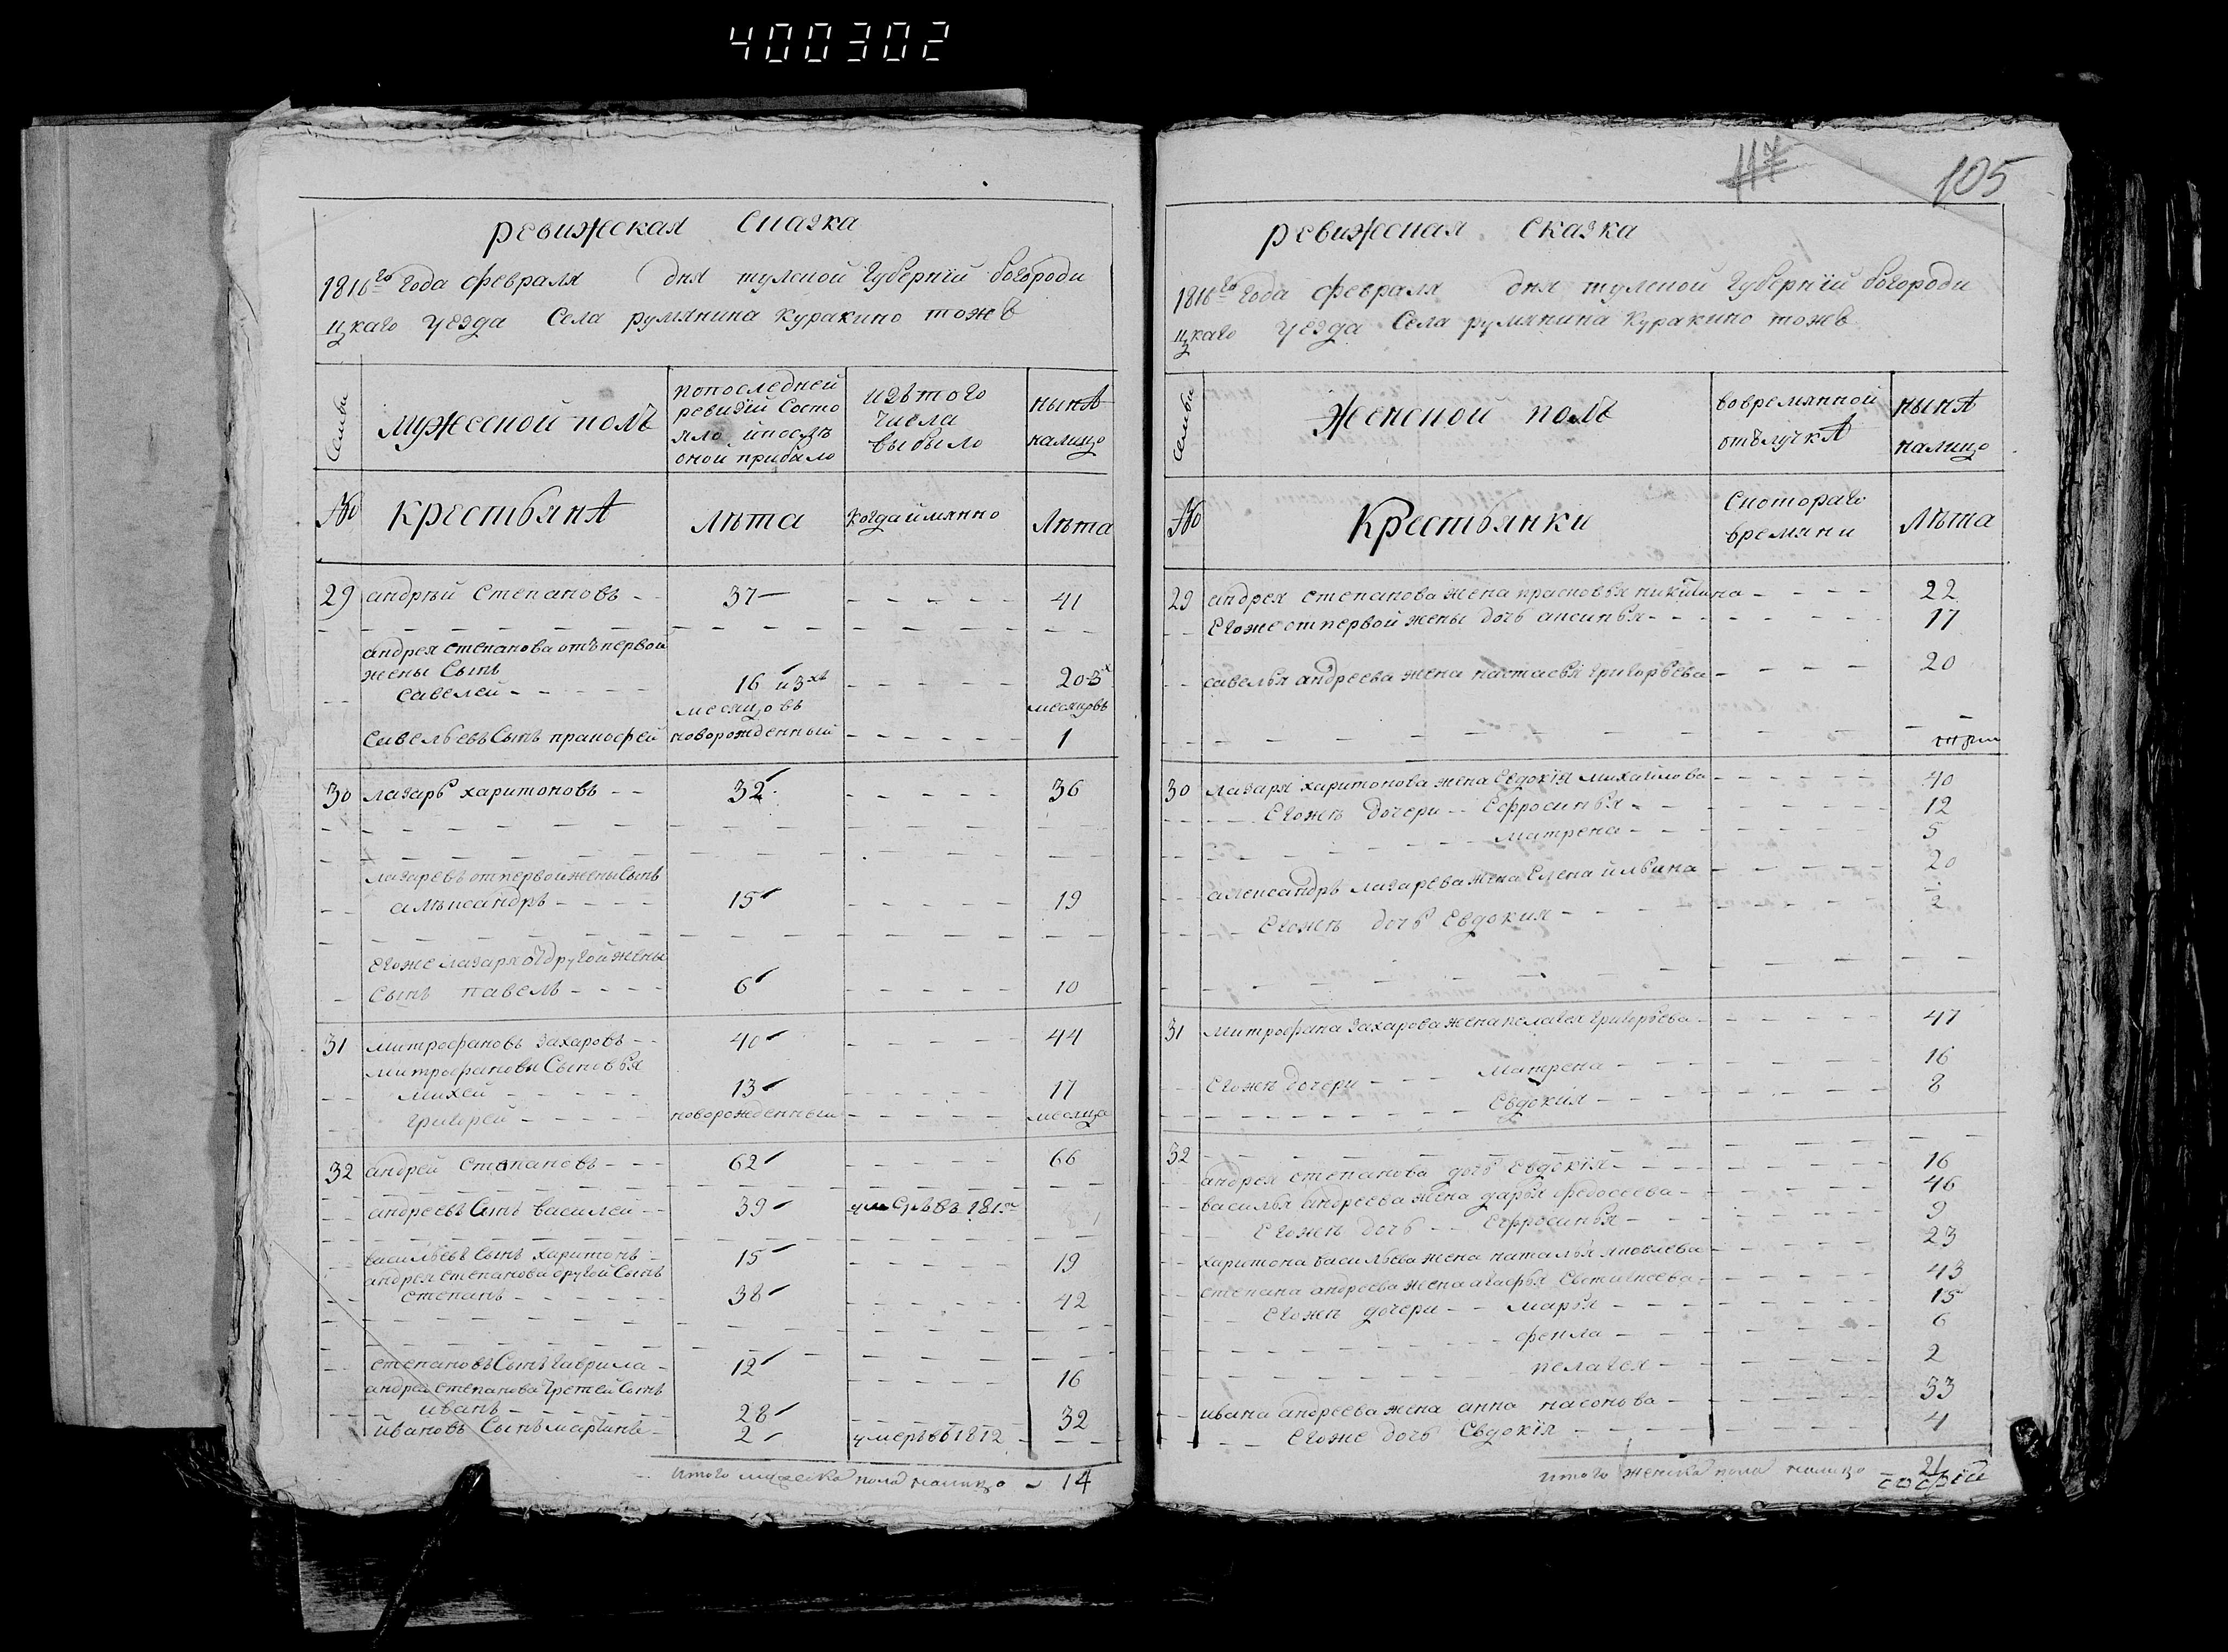 400302
ревижская сказка
1816го года февраля дня тулской губернїи богороди
цкаго уезда Села румянцина куракино тожъ
Семьи
мужеской полъ
попоследней
ревизїи Состо
яло ипослѣ
оной прибыло
изътого
числа
выбыло
нынѣ
налицо
№
крестьянѣ
лѣта
когдаимянно
лѣта
29 андрѣй Степановъ - - 37 - - - - - 41
андрея степанова отъпервой
жены Сынъ
савелей - - - - 16 и 3хъ - - - - - 20 3х
месяцовъ месяцовъ
Савельевъ Сынъ пракофей новорожденный - - - - - 1
30 лазарь харитоновъ - - 32 - - - - - 36
лазаревъ отпервойжены Сынъ
алѣксандръ - - - - 15 - - - - - 19
егоже лазаря отдругойжены
Сынъ павелъ - - - - 6 - - - - - 10
31 митрофановъ захаровъ - - 40 - - - - - 44
митрофановы Сыновья
михей - - - - 13 - - - - - 17
григорей - - - - новорожденный - - - - месяца
32 андрей степановъ - - - 62 - - - - - 66
андреевъ Сынъ василей - - 39 -
васильевъ Сынъ харитонъ - 15 - - - - - 19
андрея степанова другой Сынъ
степанъ - - - - 38 - - - - - 42
степановъ Сынъ гаврила - 12 - - - - - 16
андрея степанова третей Сынъ
иванъ - - - - 28 - - - - - 32
ивановъ Сынъ мартинъ - 2 - умеръвъ1812 - - -
итого мужеска пола налицо - 14
117
105
ревижская сказка
1816го года февраля дня тулской губернїи богороди
цкаго уезда Села румянцина куракино тожъ
Семьи
женской полъ
вовремянной
отълучкѣ
нынѣ
налицо
№
крестьянки
Скотораго
времяни
лѣта
29 андрея степанова жена прасковья никитина - - - - 22
Егоже отпервой жены дочь аксинья - - - - 17
савелья андреева жена настасья григорьева - - - - 20
30 лазаря харитонова жена Евдокїя михайлова - - - - 40
Егожъ дочери - - Ефросинья - - - - 12
матрена - - - - 5
александръ лазарева жена Елена ильина - - - - 20
Егожъ дочь Евдокия - - - - 2
31 митрофана захарова жена пелагея григорьева - - - - 47
Егожъ дочери - - - матрена - - - - 16
Евдокїя - - - - 8
32
андрея степанова дочь Евдокїя - - - - 16
василья андреева жена дарья федосеева - - - - 46
Егожъ дочь - - Ефросинья - - - - 9
харитона васильева жена наталья яковлева - - - - 23
степана андреева жена агафья Евтигнеева - - - - 43
Егожъ дочери - - марья - - - - 15
фекла - - - - 6
пелагея - - - - 2
ивана андреева жена анна насонова - - - - 33
Егоже дочь Евдокїя - - - - 4
итого женска пола налицо 21